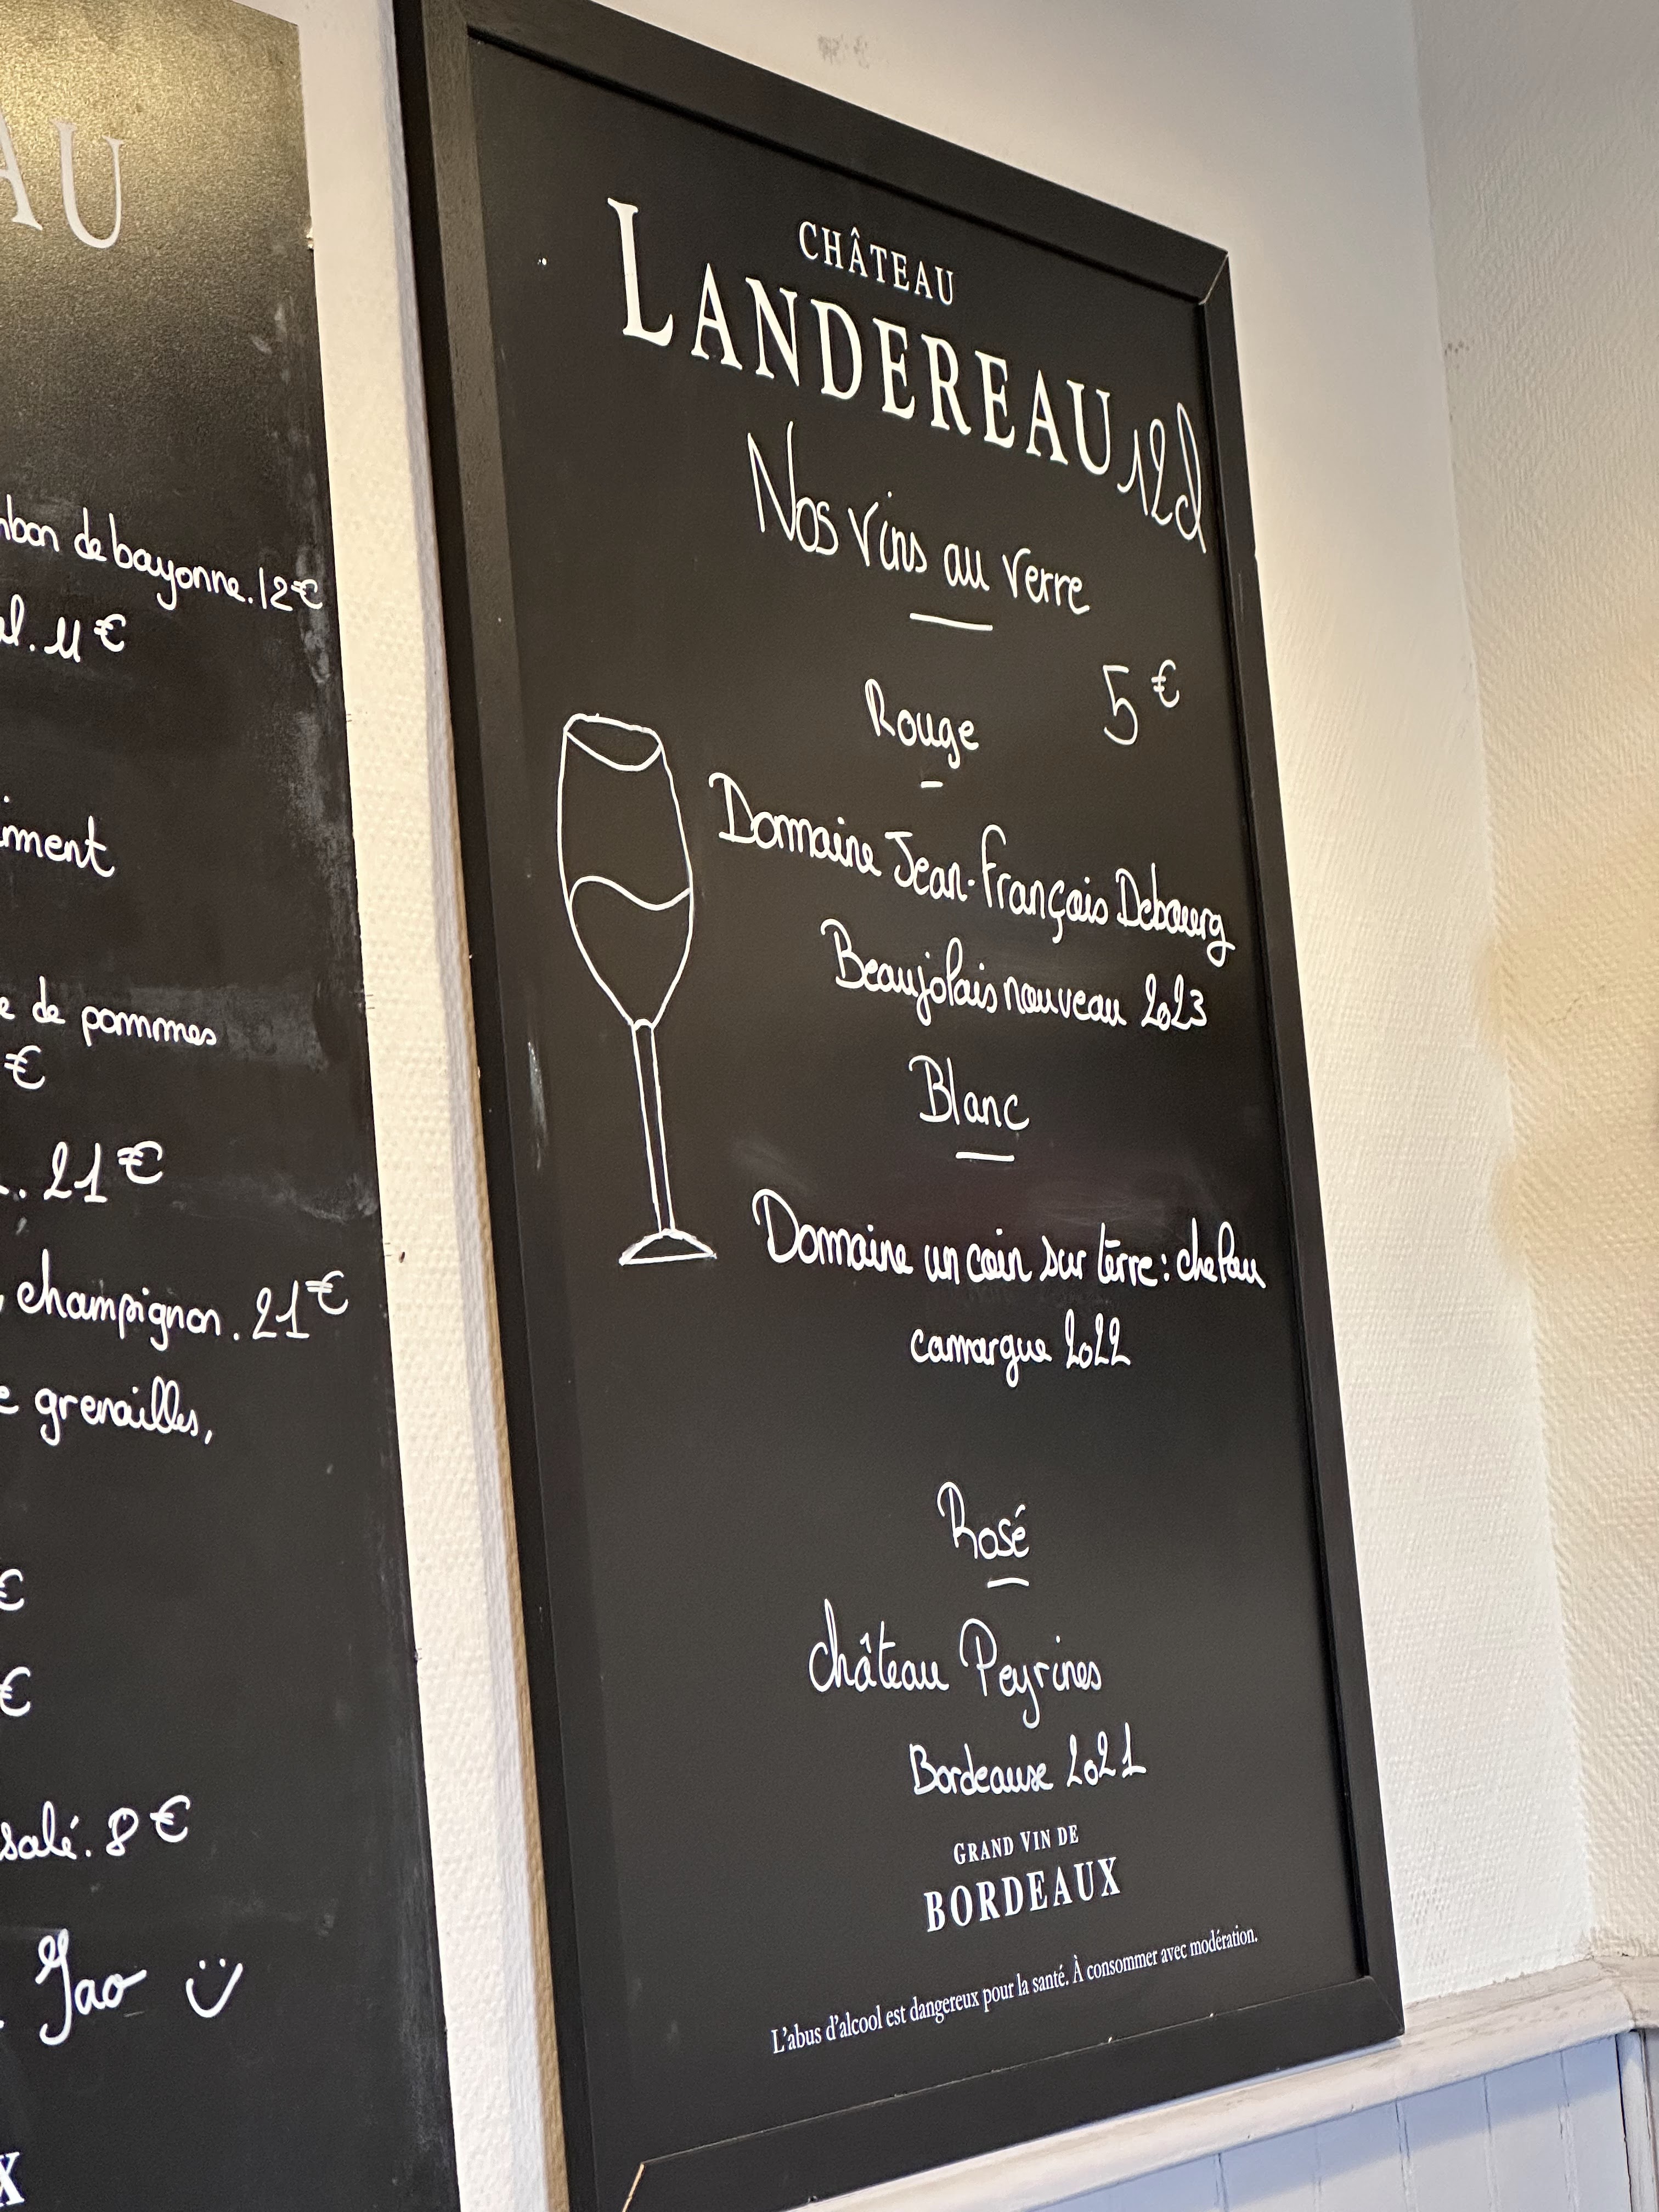 AU
bon de bayonne. 12€
al. 11€
iment
e de pommes
€
. 21€
, champignon. 21€
e grenailles,
€
€
salé. 8€
Jao
X
CHÂTEAU
LANDEREAU 12cl
Nos vins au verre
Rouge 5€
Domaine Jean-François Debourg
Beaujolais nouveau 2023
Blanc
Domaine un coin sur terre: che Pau
camargue 2022
Rosé
Château Peyrines
Bordeaux 2021
GRAND VIN DE
BORDEAUX
L'abus d'alcool est dangereux pour la santé. À consommer avec modération.